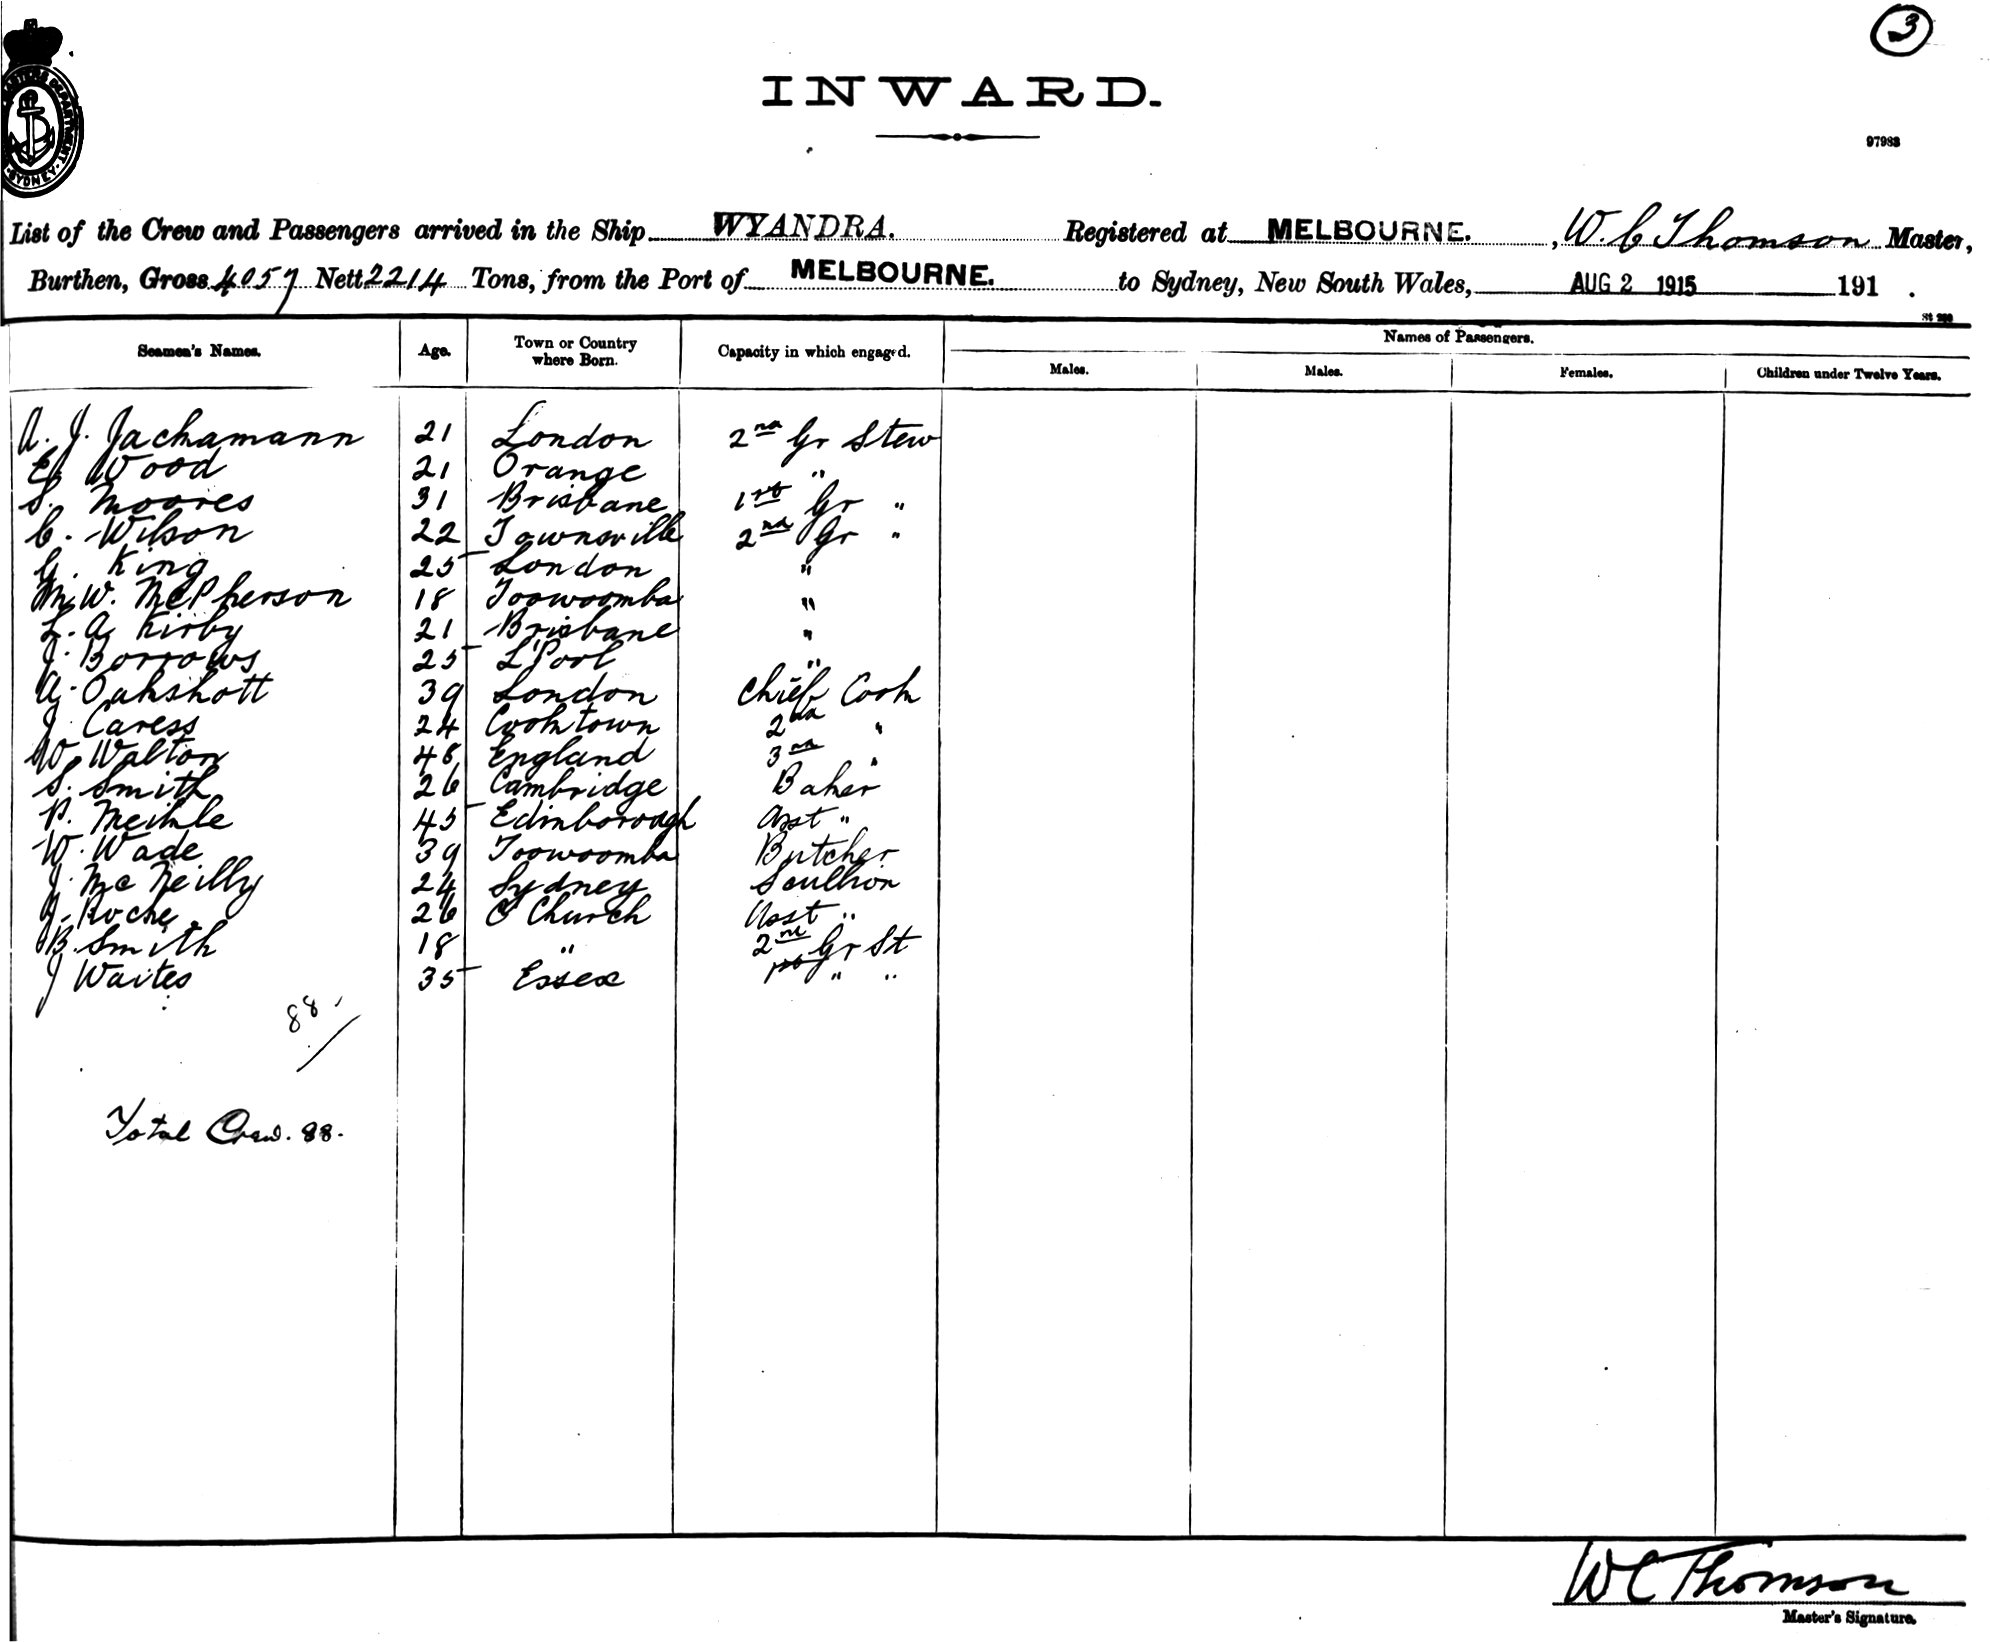 3
INWARD.
97983
CUSTOMS DEPARTMENT SYDNEY
List of the Crew and Passengers arrived in the Ship WYANDRA. Registered at MELBOURNE. , W. C Thomson Master,
Burthen, Gross 4057 Nett 2214 Tons, from the Port of MELBOURNE. to Sydney, New South Wales, AUG 2 1915 191 .
Seamen's Names. Age. Town or Country where Born. Capacity in which engaged. Names of Passengers.
Males. Males. Females. Children under Twelve Years.
A. J. Jachamann 21 London 2nd Gr Stew
E. Wood 21 Orange "
S. Moores 31 Brisbane 1st Gr "
C. Wilson 22 Townsville 2nd Gr "
G. King 25 London "
M. W. McPherson 18 Toowoomba "
L. A Kirby 21 Brisbane "
J. Borrows 25 L'Pool "
A. Oakshott 39 London Chief Cook
J. Caress 24 Cooktown 2nd "
W Walton 48 England 3rd "
S. Smith 26 Cambridge Baker
P. Meikle 45 Edinborough Asst "
W. Wade 39 Toowoomba Butcher
J. McNeilly 24 Sydney Scullion
J. Roche 26 C Church Asst "
B. Smith 18 " 2nd Gr St
J Waites 35 Essex 1st " "
88.
Total Crew. 88.
W C Thomson
Master's Signature.